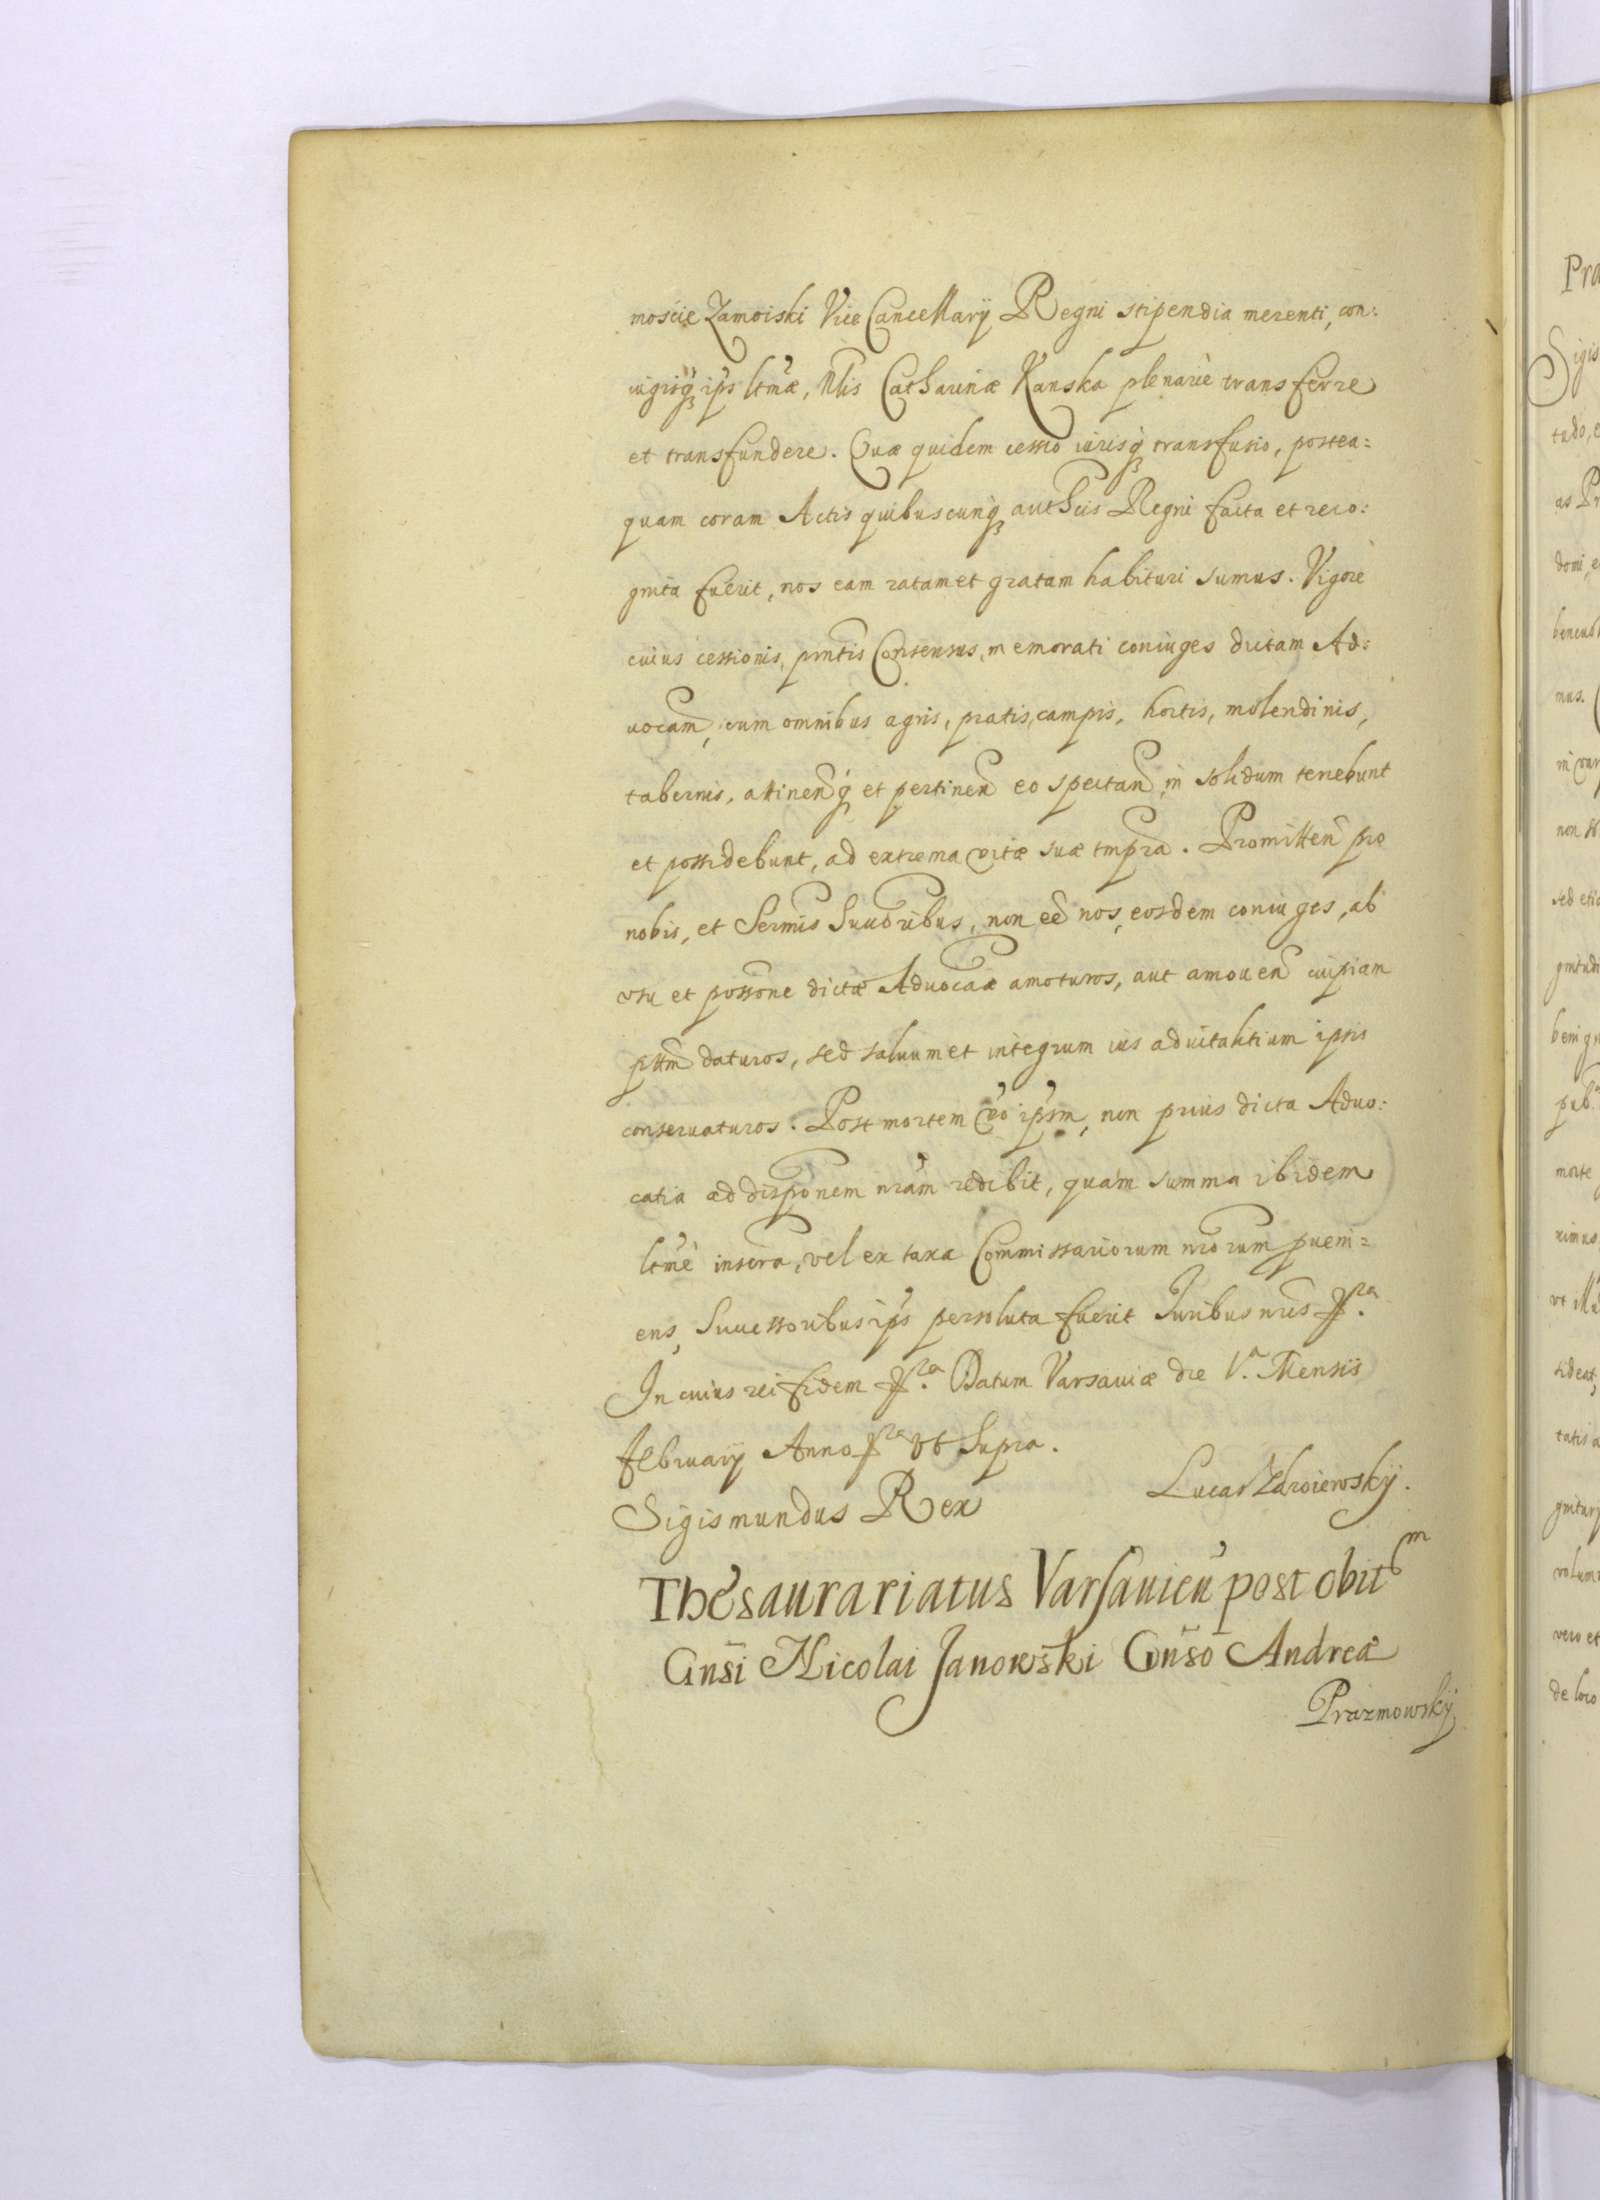 moscie Zamoiski Vice Cancellarÿ Regni stipendia merenti, con:
iugiq́ꝫ ips ltmæ, Nlis Catharinæ Kanska plenarie transferre
et transfundere. Quæ quidem cessio iurisq́ꝫ transfusio, postea:
quam coram Actis quibuscunq́ꝫ authcis Regni facta et reco:
gnita fuerit, nos eam ratam et gratam habituri sumus. Vigore
cuius cessionis, pnntis Consensus, memorati coniuges dictam Ad:
uocam, cum omnibus agris, pratis, campis, hortis, molendinis,
tabernis, attinenq́ et pertinen eo spectan, in solidum tenebunt
et possidebunt, ad extrema vitæ suæ tmpra. Promitten pro
nobis, et Sermis Succoribus, non eē nos, eosdem coniuges, ab
vsu et possone dictæ Aduocaæ amoturos, aut amouen cuipiam
pttm daturos, sed saluum et integrum ius aduitalitium ipsis
conseruaturos. Post mortem vo ipsm, non prius dicta Aduo:
catia ad disponem nram redibit, quam summa ibidem
ltme inserta, vel ex taxa Commissariorum nrorum pueni=
ens, Successoribus ips persoluta fuerit Juribus nris &ra.
In cuius rei fidem &ra. Datum Varsauiæ die Va. Mensis
Februarÿ Anno &ra vt Supra.
Sigismundus Rex
Lucas Zdroiewskÿ.
Thesaurariatus Varsauien post obitm
Gnsi Nicolai Janowski Gnso Andreæ
Prazmowskÿ